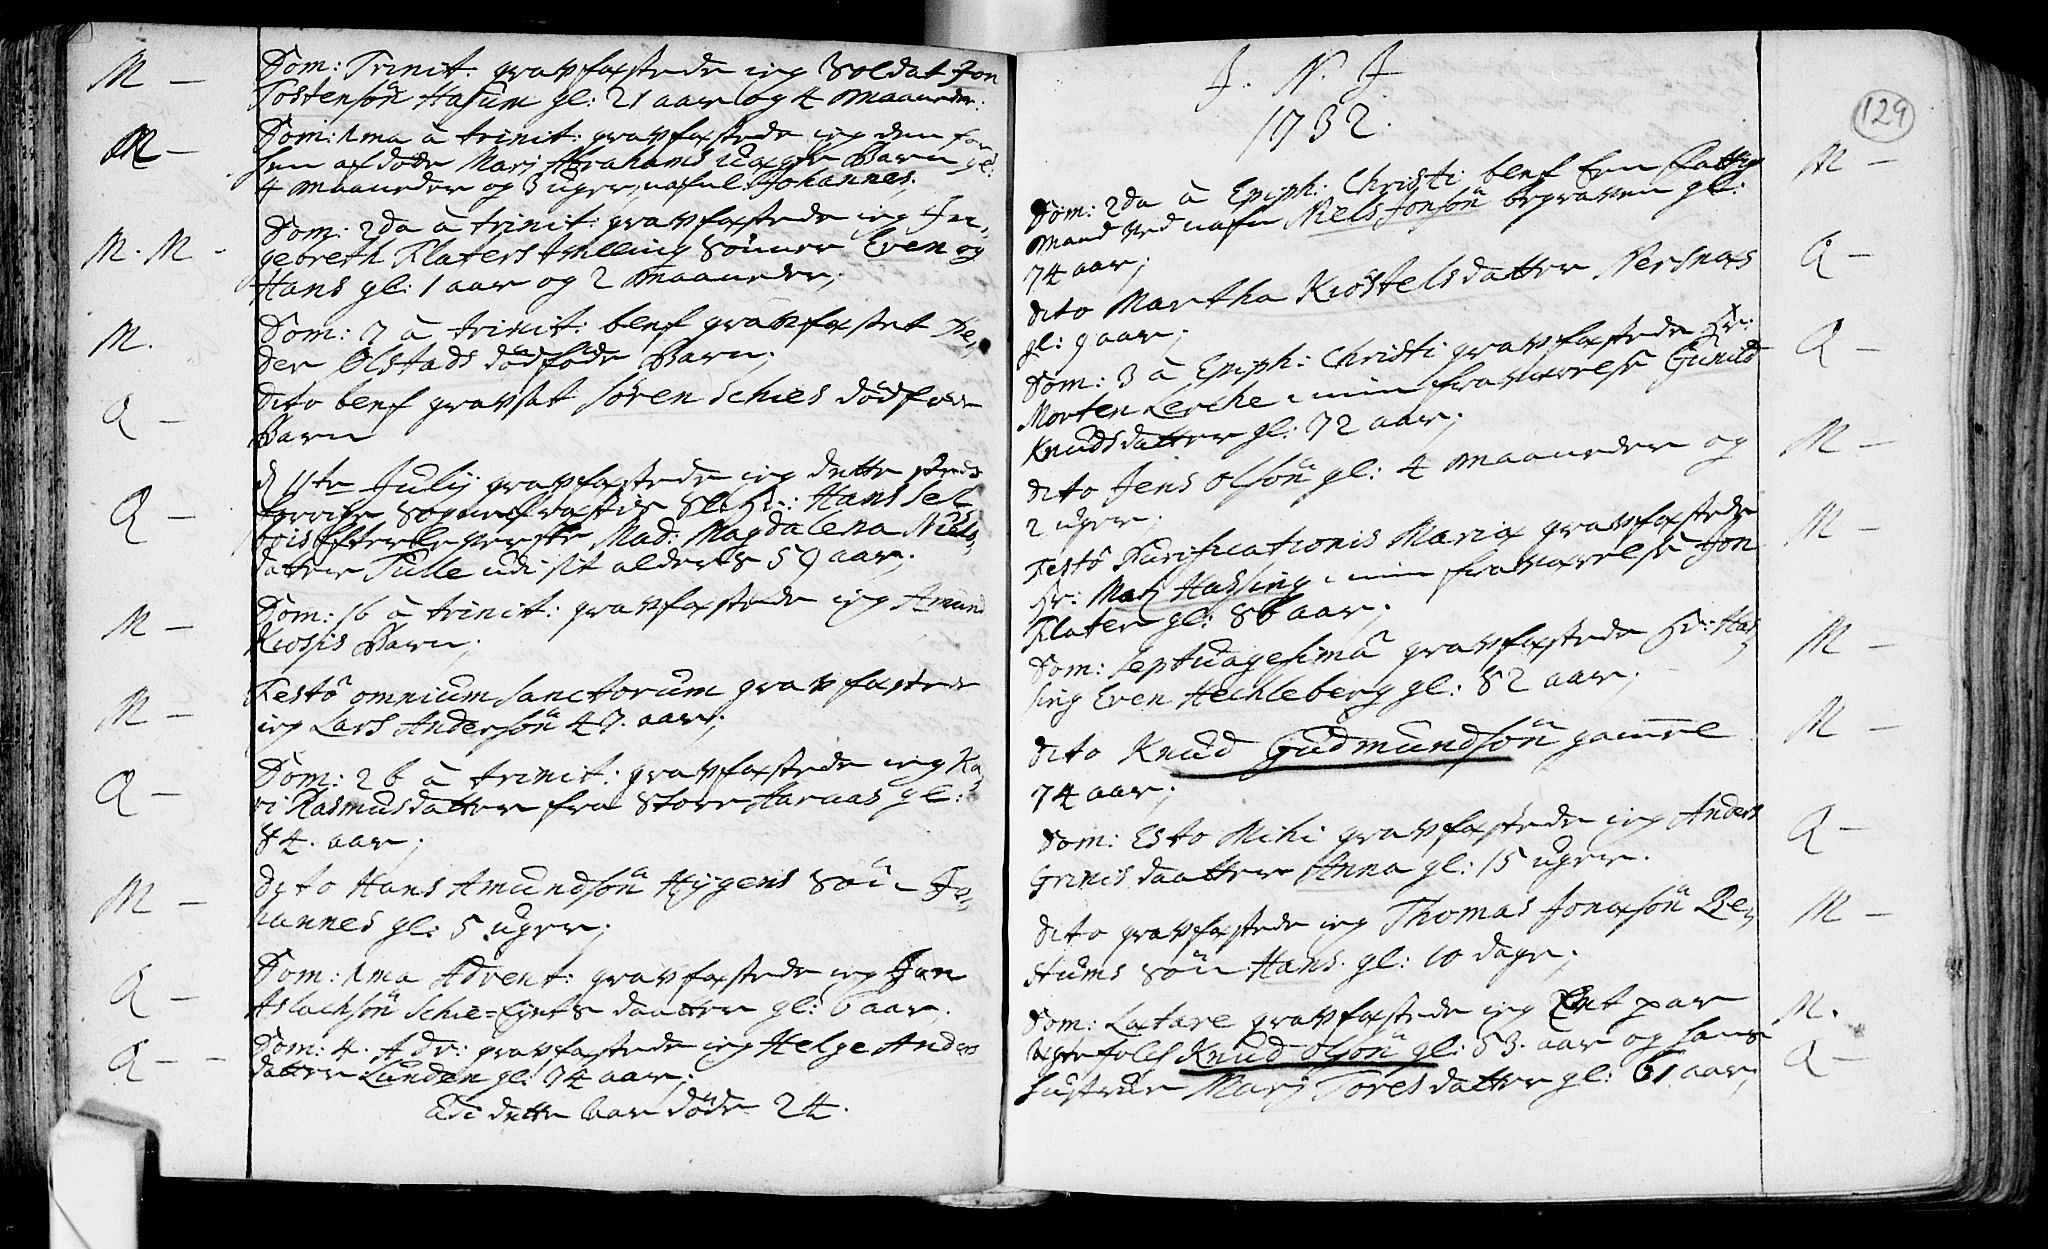 M -
Dom: Trinit: gravfæstede ieg Soldat Jon
Tostensön Hasum gl: 21 aar og 4 Maaneder.
M -
Dom: 1ma à trinit: gravfæstede ieg den for
hen afdöde Marj Abrahams Barn gl:
4 Maaneder og 3 uger, nafnl: Johannes.
M. M -
Dom: 2da à trinit: gravfæstede ieg In-
gebreth Flaters tvilling Sönner Even og
Hans gl: 1 aar og 2 Maaneder;
M.
Dom: 7 à trinit: blef gravfæstet Pe-
der Olstads dödföde Barn;
Q -
Dito blef gravsat Sören Schies dödföde
Barn
Q -
d 11te Julij gravfæstede ieg dette
Sogne Sl: Hr: Hans Sel
bois Efterleverske Mad: Magdalena Niels-
datter Tulle udi sit alders 59 aar;
M -
Dom: 16 à trinit: gravfæstede ieg Amund
Kiosjis Barn;
M -
Festô omnium Sanctorum gravfæstede
ieg Lars Andersön 47. aar;
Q -
Dom: 26 à trinit: gravfæstede ieg Ka-
ri Rasmusdatter fra Store Aaraas gl:
84. aar;
M -
Dito Hans Amundsön Hygens Sön Jo-
hannes gl: 5 uger;
Q -
Dom: 1ma Advent: gravfæstede ieg Jon
Aslachsön Schie=Eyets daatter gl: 6 aar.
Q - -
Dom: 4. Adv: gravfæstede ieg Helge Anders
datter Lunden gl: 74 aar;
Udi dette Aar döde 24.
J. N. J
1732.
129
Dom: 2da à Epiph: Christi blef Een fattig
M -
Mand ved nafn Niels Jonsön begraven gl:
74 aar;
Dito Martha Kiöstelsdatter Nersnæs
Q -
gl: 9 aar;
Dom: 3 à Epiph: Christi gravfæstede Hr:
Q -
Morten Lerche i min fraværelse Gunild
Knudsdatter gl: 72 aar;
Dito Jens Olsön gl: 4 Maaneder og
M -
2 uger;
Festô Purificationis Mariæ gravfæstede
M -
Hr: Matz Hassing i min fraværelse Jon
Flater gl: 86 aar;
Dom: Septuagesimâ gravfæstede Hr: Has-
M -
sing Even Hechleberg gl: 82 aar;
Dito Knud Gudmundsön gamel
M -
74 aar;
Dom: Esto Mihi gravfæstede ieg Anders
Q -
Grinis daatter Anna gl: 15 uger.
Dito gravfæstede ieg Thomas Jonæsön Be-
M -
stums Sön Hans gl: 10 dage;
Dom: Lætare gravfæstede ieg Et par
M.
ægtefolch Knud Olsön gl: 53. aar og hans
Q -
hustrue Marj Toresdatter gl: 61 aar;